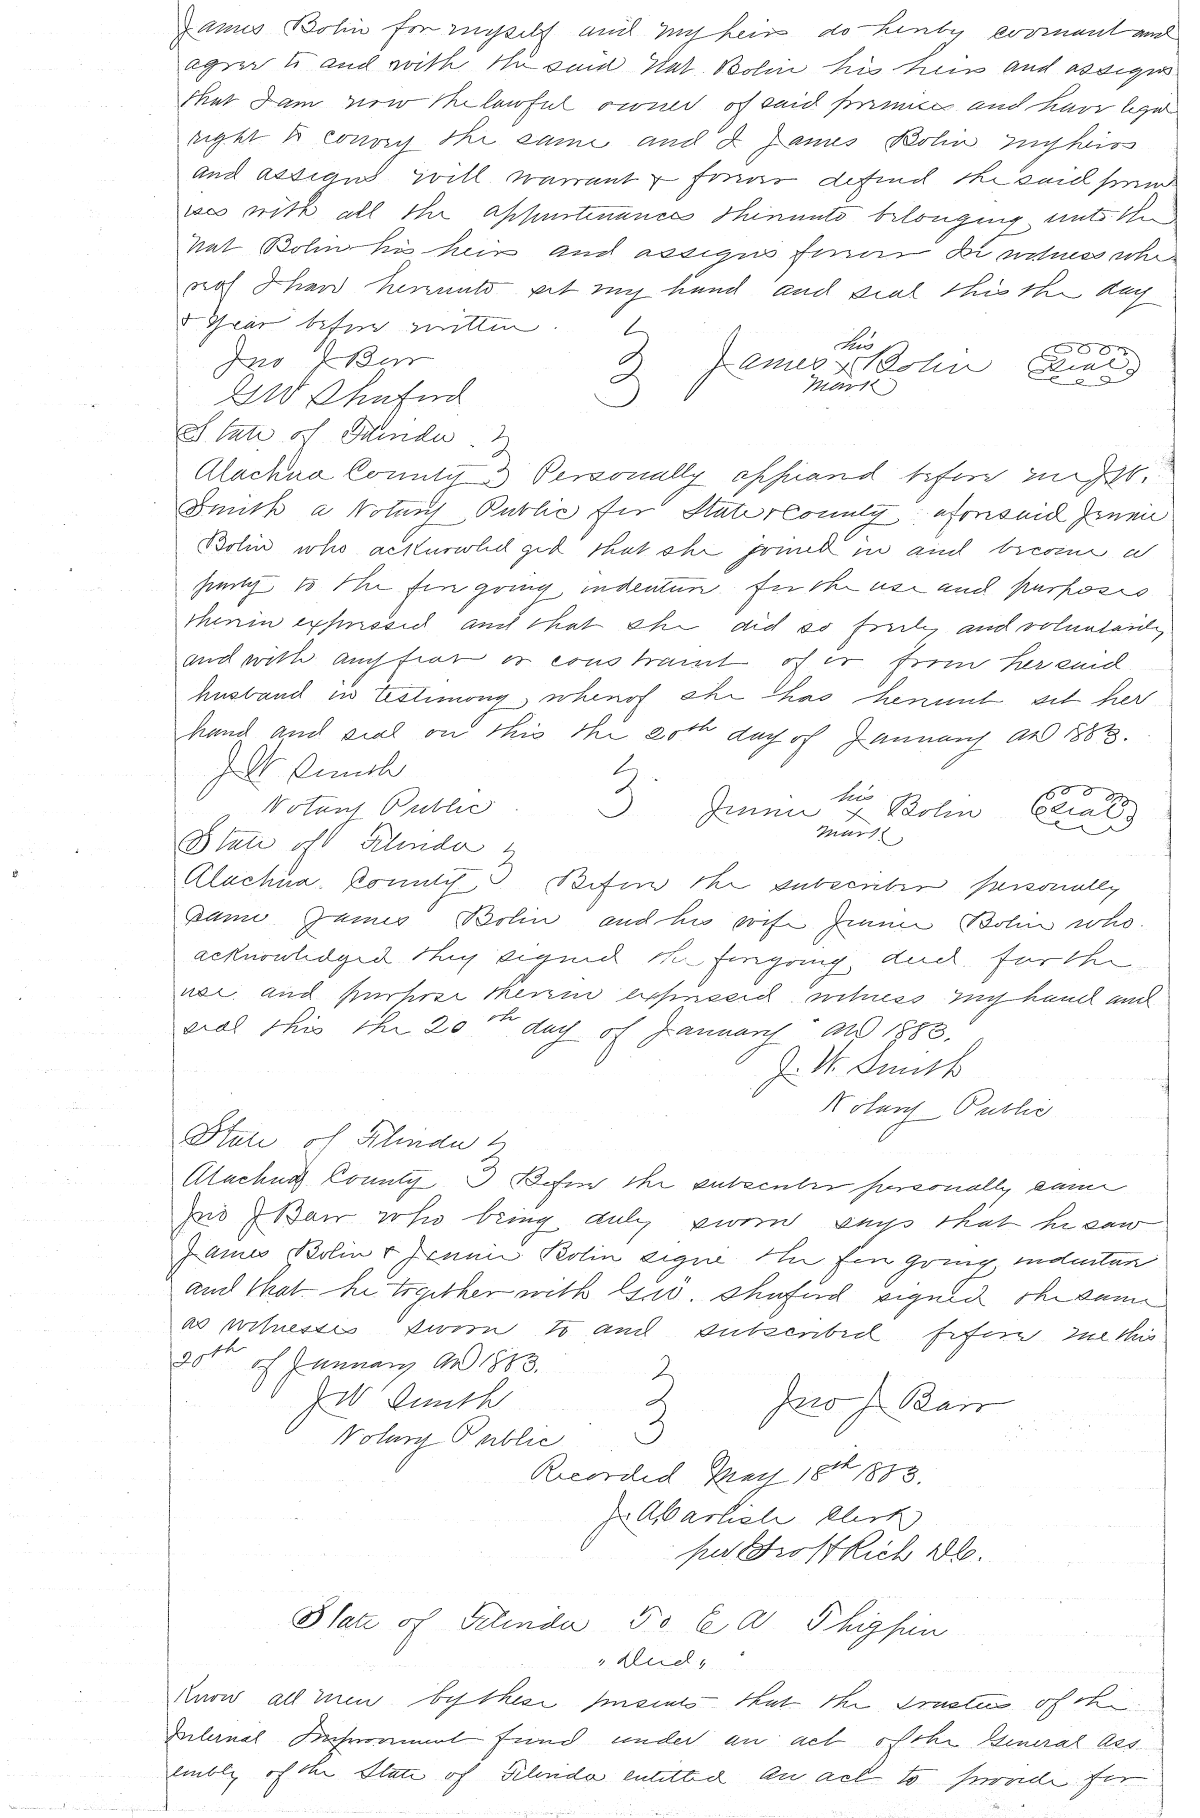 James Bolin for myself and my heirs do hereby covenant and
agree to and with the said Nat Bolin his heirs and assigns
that I am now the lawful owner of said premices and have legal
right to convey the same and I James Bolin my heirs
and assigns will warrant & forever defend the said prem
ises with all the appurtenances thereunto belonging unto the
Nat Bolin his heirs and assigns forever In witness whe
reof I have hereunto set my hand and seal this the day
& year before written.
Jno J Barr
his
James x Bolin Seal
mark
GW Shuford
State of Florida
Alachua County Personally appeared before me J.W.
Smith a Notary Public for State & County aforesaid Jennie
Bolin who acknowledged that she joined in and become a
party to the fore going indenture for the use and purposes
therein expressed and that she did so freely and voluntarily
and with any fear or constraint of or from her said
husband in testimony whereof she has hereunt set her
hand and seal on this the 20th day of January AD 1883.
J W Smith
Notary Public
his
Jennie x Bolin Seal
mark
State of Florida
Alachua County Before the subscriber personally
came James Bolin and his wife Jennie Bolin who
acknowledged they signed the foregoing deed for the
use and purpose therein expressed witness my hand and
seal this the 20th day of January AD 1883.
J. W. Smith
Notary Public
State of Florida
Alachua County Before the subscriber personally came
Jno J Barr who being duly sworn says that he saw
James Bolin & Jennie Bolin signe the fore going indenture
and that he together with GW. Shuford signed the same
as witnesses sworn to and subscribed before me this
20th of January AD 1883.
J W Smith
Notary Public
Jno J Barr
Recorded May 18th 1883.
J. A. Carlisle Clerk
per Rich D.C.
State of Florida To E A Thigpin
"Deed"
Know all men by these presents that the trustees of the
Internal Improvement fund under an act of the General Ass
embly of the State of Florida entitled an act to provide for